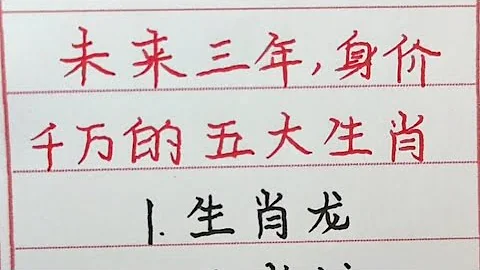 未来三年,身价
千万的五大生肖
1.生肖龙